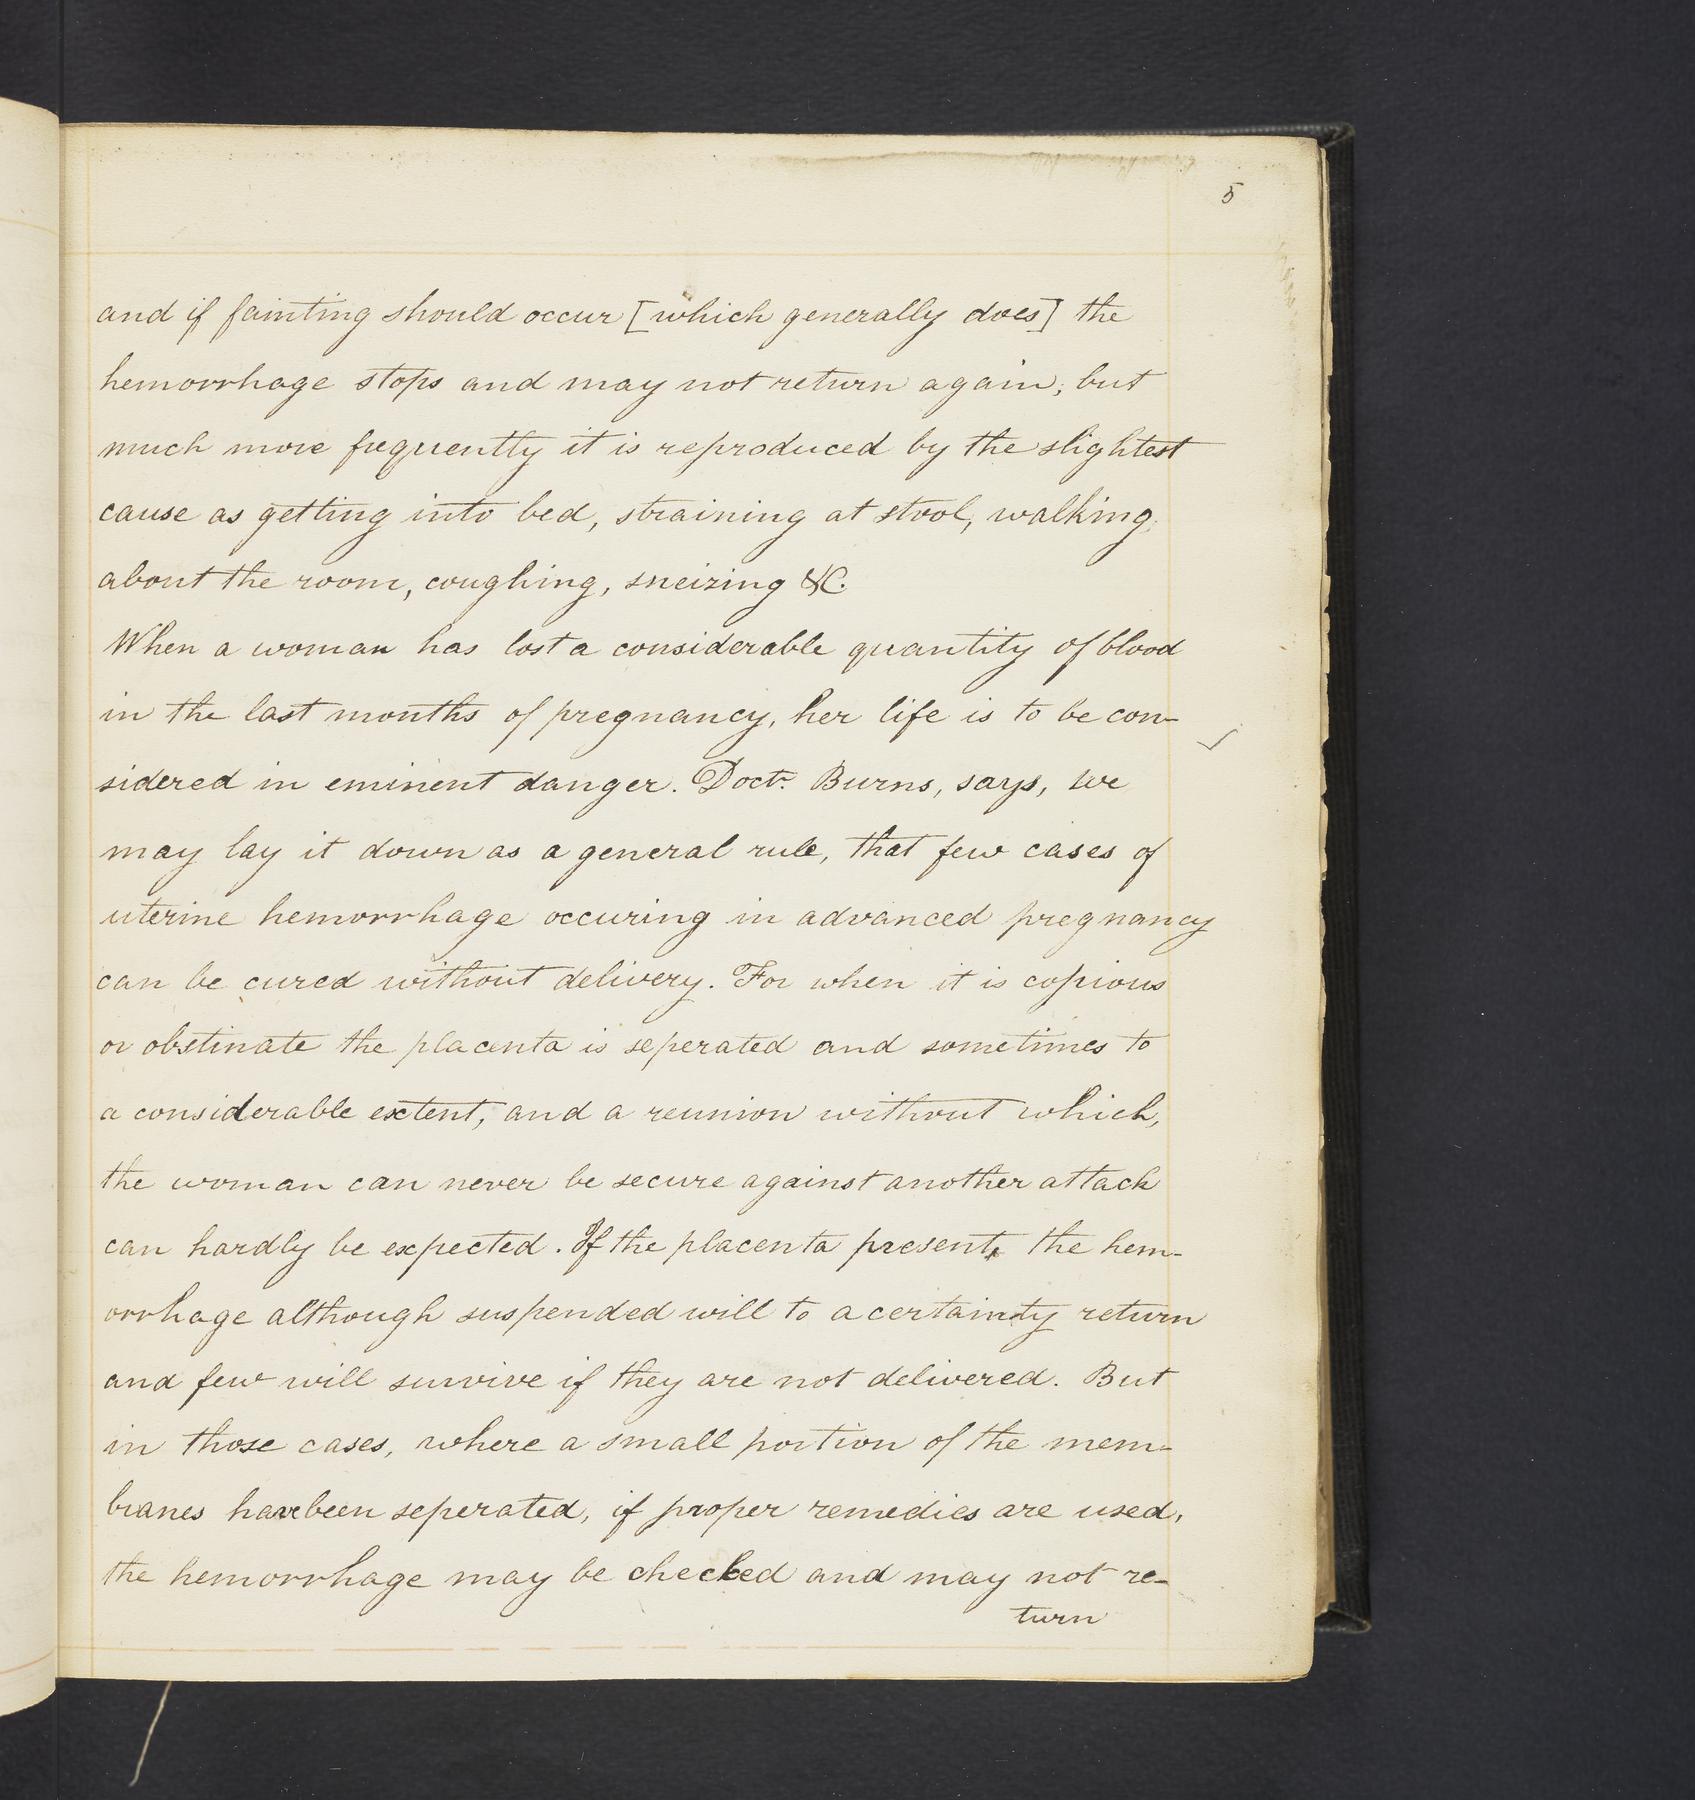 5
and if fainting should occur [which generally does] the
hemorrhage stops and may not return again; but
much more frequently it is reproduced by the slightest
cause as getting into bed, straining at stool, walking
about the room, coughing, sneizing &C.
When a woman has lost a considerable quantity of blood
in the last months of pregnancy, her life is to be con-
sidered in eminent danger. Doctr. Burns, says, we
may lay it down as a general rule, that few cases of
uterine hemorrhage occuring in advanced pregnancy
can be cured without delivery. For when it is copious
or obstinate the placenta is seperated and sometimes to
a considerable extent, and a reunion without which,
the woman can never be secure against another attack
can hardly be expected. If the placenta present, the hem-
orrhage although suspended will to a certainty return
and few will survive if they are not delivered. But
in those cases, where a small portion of the mem-
branes have been seperated, if proper remedies are used,
the hemorrhage may be checked and may not re-
turn